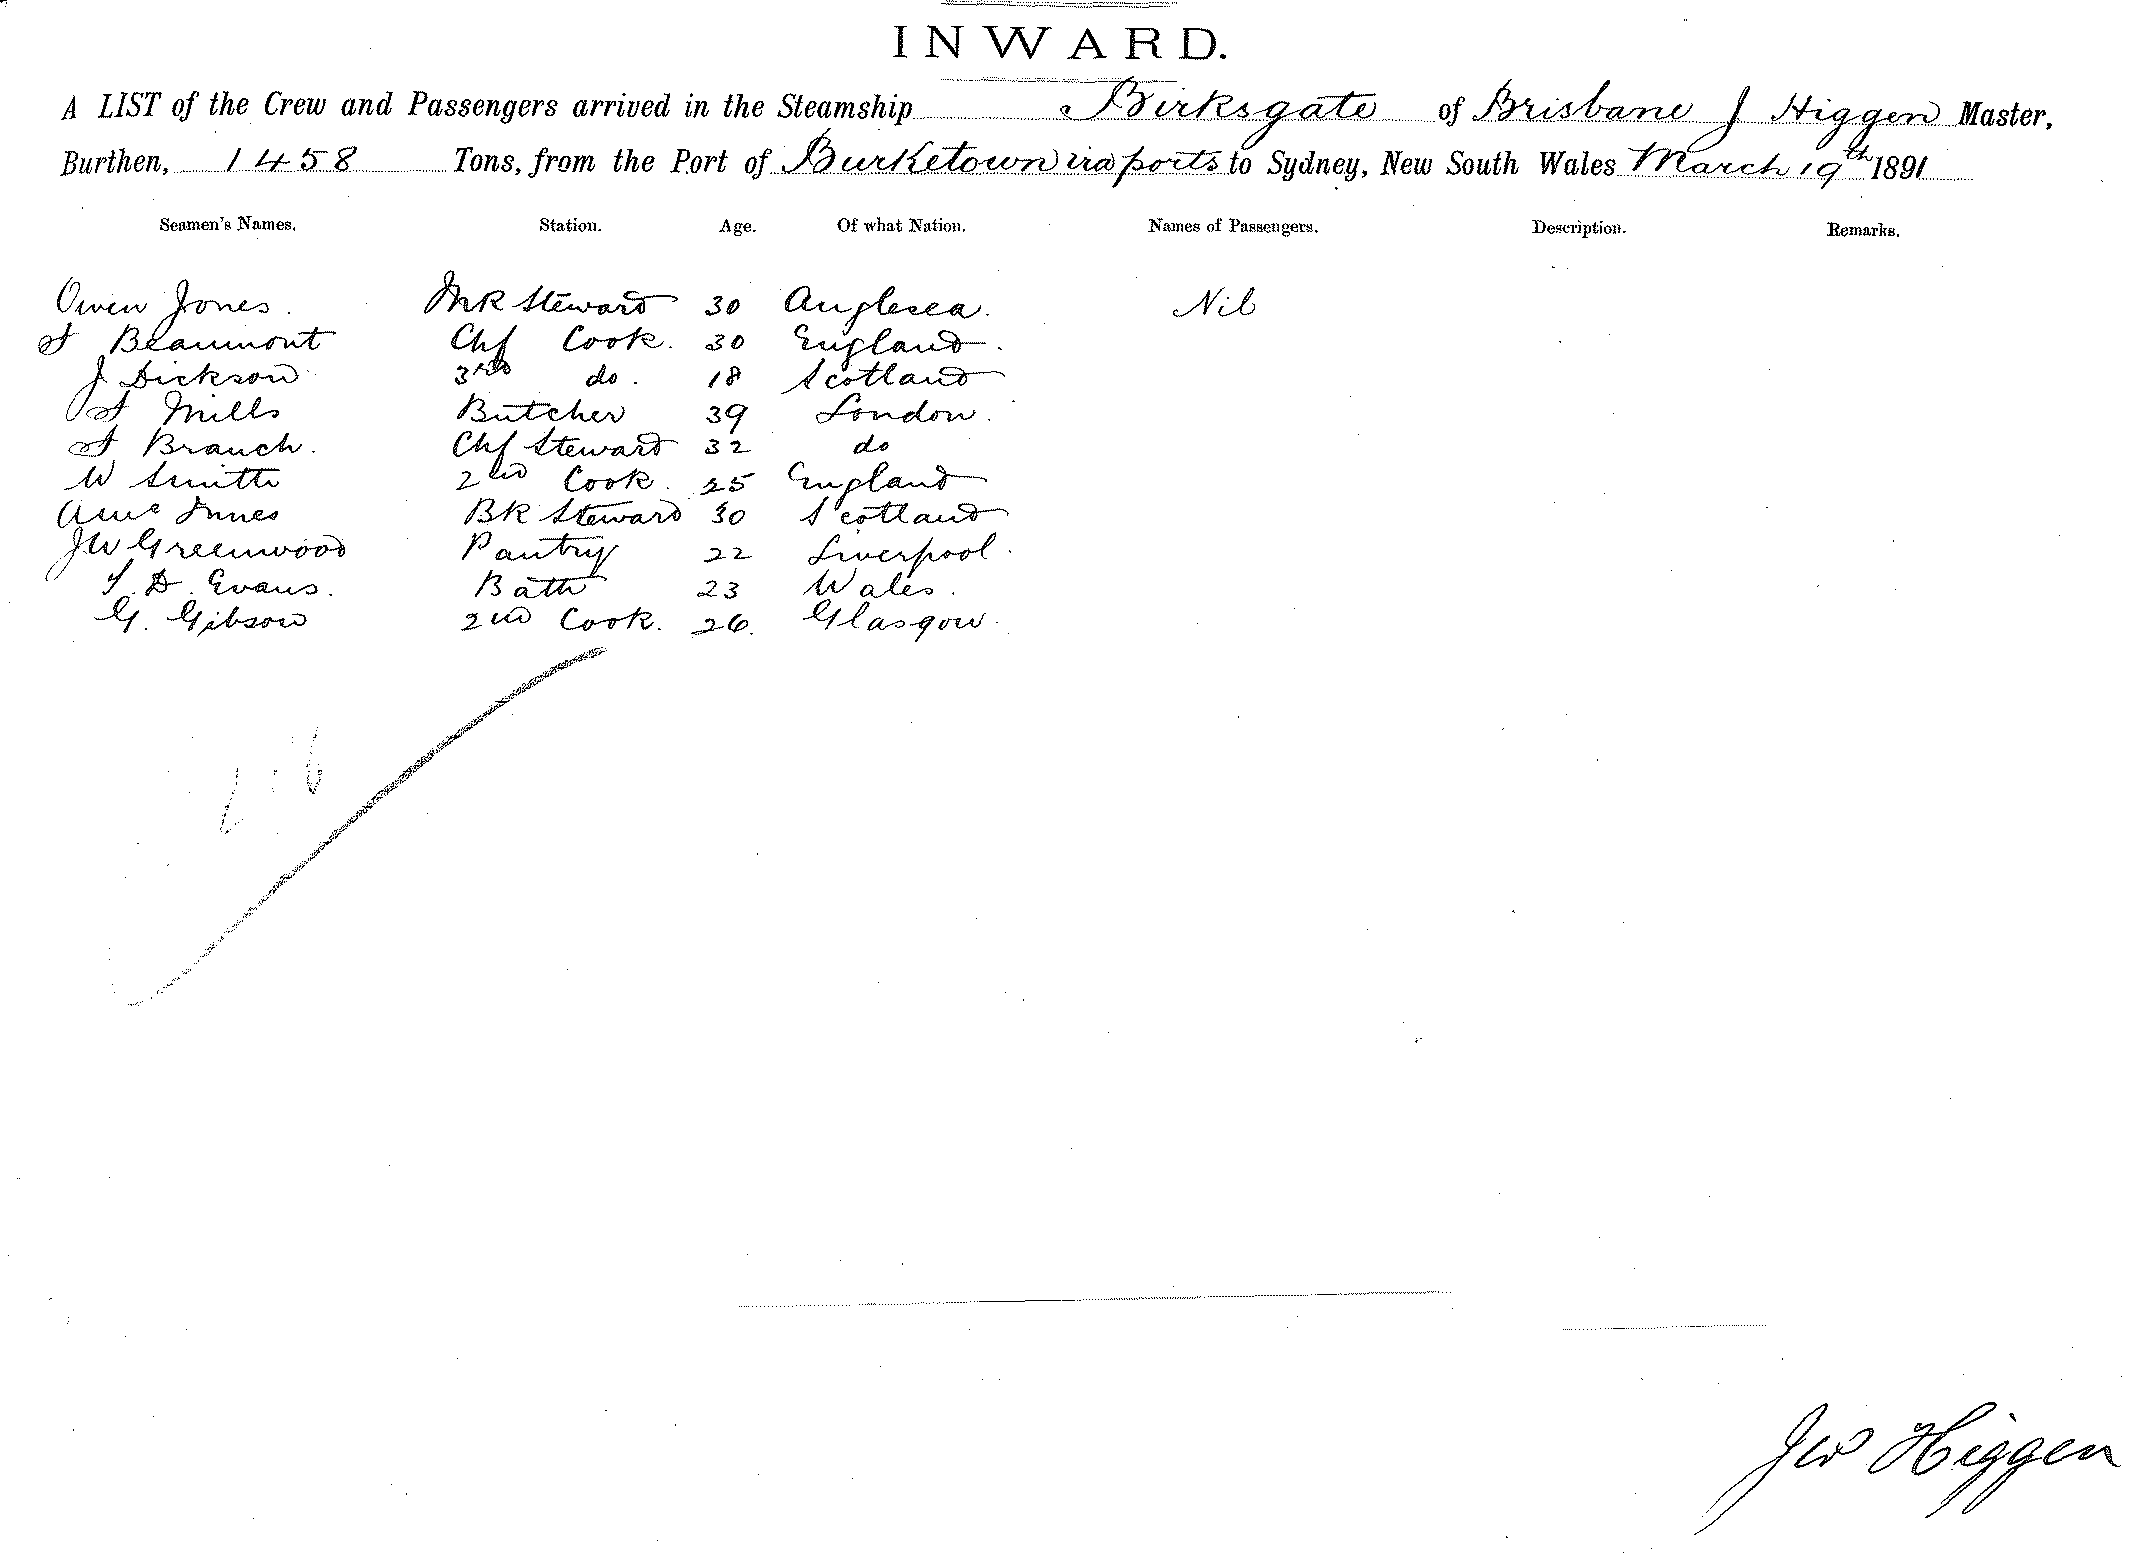 INWARD.
A LIST of the Crew and Passengers arrived in the Steamship Birksgate of Brisbane J Higgen Master,
Burthen, 1458 Tons, from the Port of Burketown via ports to Sydney, New South Wales March 19th 1891
Seamen's Names. Station. Age. Of what Nation. Names of Passengers. Description. Remarks.
Owen Jones. Steward 30 Anglesea. Nil
Beaumont Chf Cook. 30 England.
J Dickson 3rd do. 18 Scotland
Mills Butcher 39 London.
Branch. Chf Steward 32 do
W Smith 2nd Cook. 25 England
A Mc Innes BK Steward 30 Scotland
JW Greenwood Pantry 22 Liverpool.
D. Evans. Bath 23 Wales.
G. Gibson 2nd Cook. 26. Glasgow.
Higgen